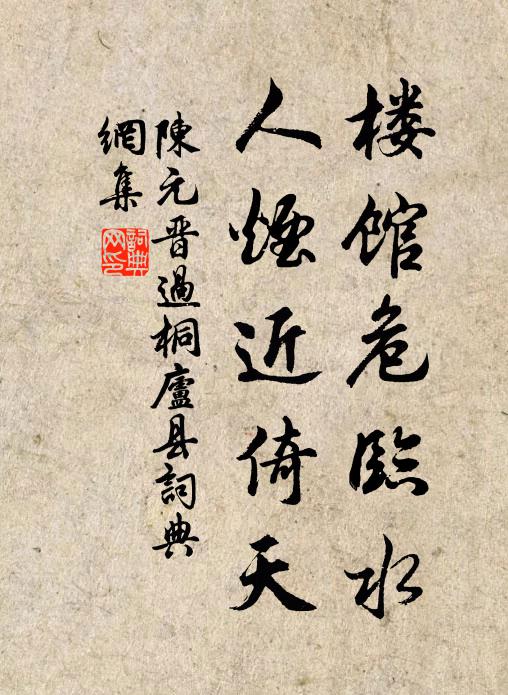 楼馆危临水
人煙近倚天
陳元晋過桐廬县詞典
網集
詞典网印